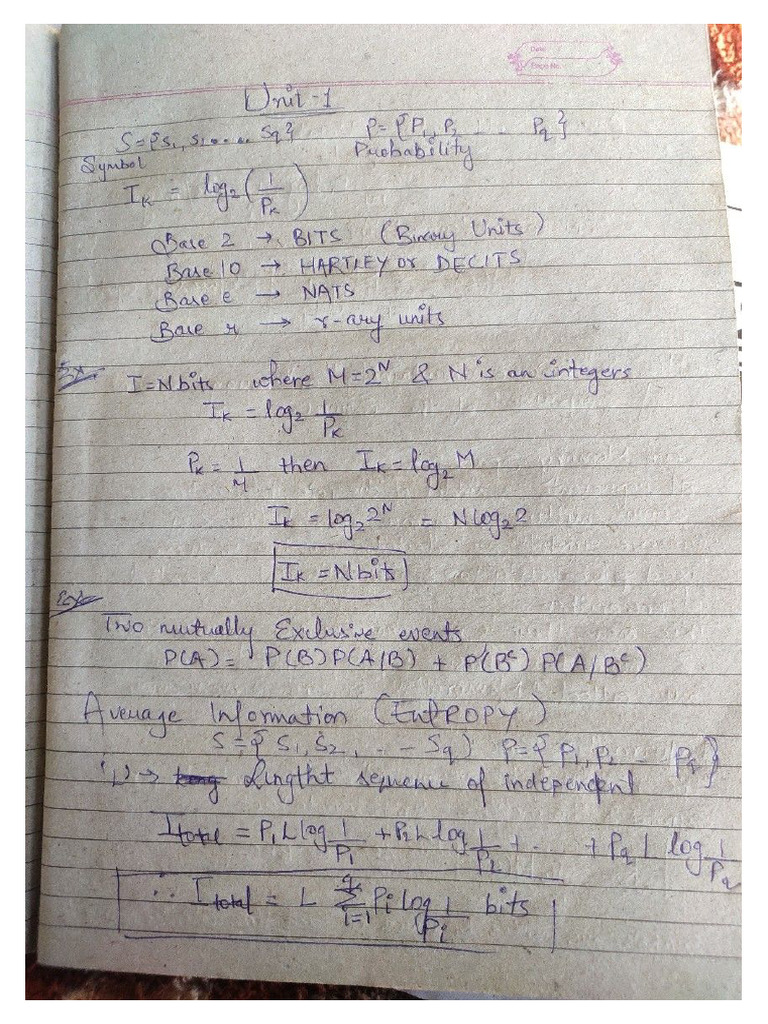 Date
Page No
Unit-1
S={s₁, s₁, .... Sq} P={P₁, P₂ - - - Pq}
Symbol Probability
Iₖ = log₂(1/Pₖ)
Base 2 → BITS (Binary Units)
Base 10 → HARTLEY or DECITS
Base e → NATS
Base r → r-ary units
Ex
I=Nbits where M=2ᴺ & N is an integers
Iₖ = log₂ 1/Pₖ
Pₖ = 1/M then Iₖ = log₂ M
Iₖ = log₂ 2ᴺ = N log₂ 2
Iₖ = N bits
Ex
Two mutually Exclusive events
P(A) = P(B)P(A/B) + P(Bᶜ) P(A/Bᶜ)
Average Information (EntROPY)
S={ S₁, S₂, . - - Sq) P={ P₁, P₂ - - Pq}
'L' → Lingtht sequence of independent
Itotal = P₁ L log 1/P₁ + P₂ L log 1/P₂ + - . + Pq L log 1/Pq
∴ Itotal = L Σ i=1 q Pi log 1/Pi bits